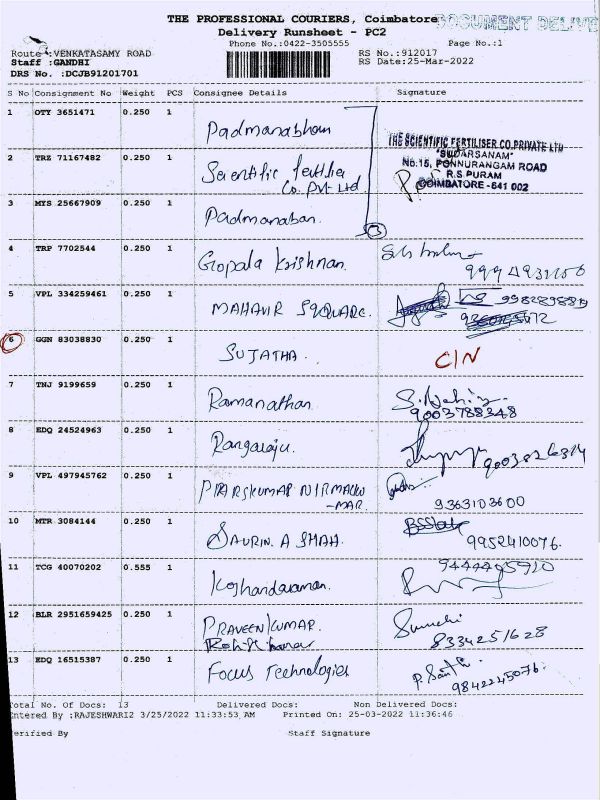 THE PROFESSIONAL COURIERS, Coimbatore
DOCUMENT DELIVE
Delivery Runsheet - PC2
Phone No.:0422-3505555 Page No.:1
Route :VENKATASAMY ROAD RS No.:912017
Staff :GANDHI RS Date:25-Mar-2022
DRS No. :DCJB91201701
S No Consignment No Weight PCS Consignee Details Signature
1 OTY 3651471 0.250 1 Padmanabhan
THE SCIENTIFIC FERTILISER CO.PRIVATE LTD
"SUDARSANAM"
No.15, PONNURANGAM ROAD
R.S.PURAM
COIMBATORE-641 002
2 TRZ 71167482 0.250 1 Scientific fertilier
Co. Pvt Ltd
3 MYS 25667909 0.250 1 Padmanaban.
3
4 TRP 7702544 0.250 1 Gopala Krishnan.
5 VPL 334259461 0.250 1 MAHAVIR SQUARE.
6 GGN 83038830 0.250 1 SUJATHA. C/N
7 TNJ 9199659 0.250 1 Ramanathan
9003788348
8 EDQ 24524963 0.250 1 Rangaraju.
9 VPL 497945762 0.250 1 NIRMALKU
-MAR. 9363103600
10 MTR 3084144 0.250 1 SAURIN. A SHAH.
9952410076.
11 TCG 40070202 0.555 1 Kothandaraman.
12 BLR 2951659425 0.250 1 PRAVEEN KUMAR.
8334251628
13 EDQ 16515387 0.250 1 Focus Technologies
9842245076.
Total No. Of Docs: 13 Delivered Docs: Non Delivered Docs:
Entered By :RAJESHWARI2 3/25/2022 11:33:53 AM Printed On: 25-03-2022 11:36:46
erified By Staff Signature